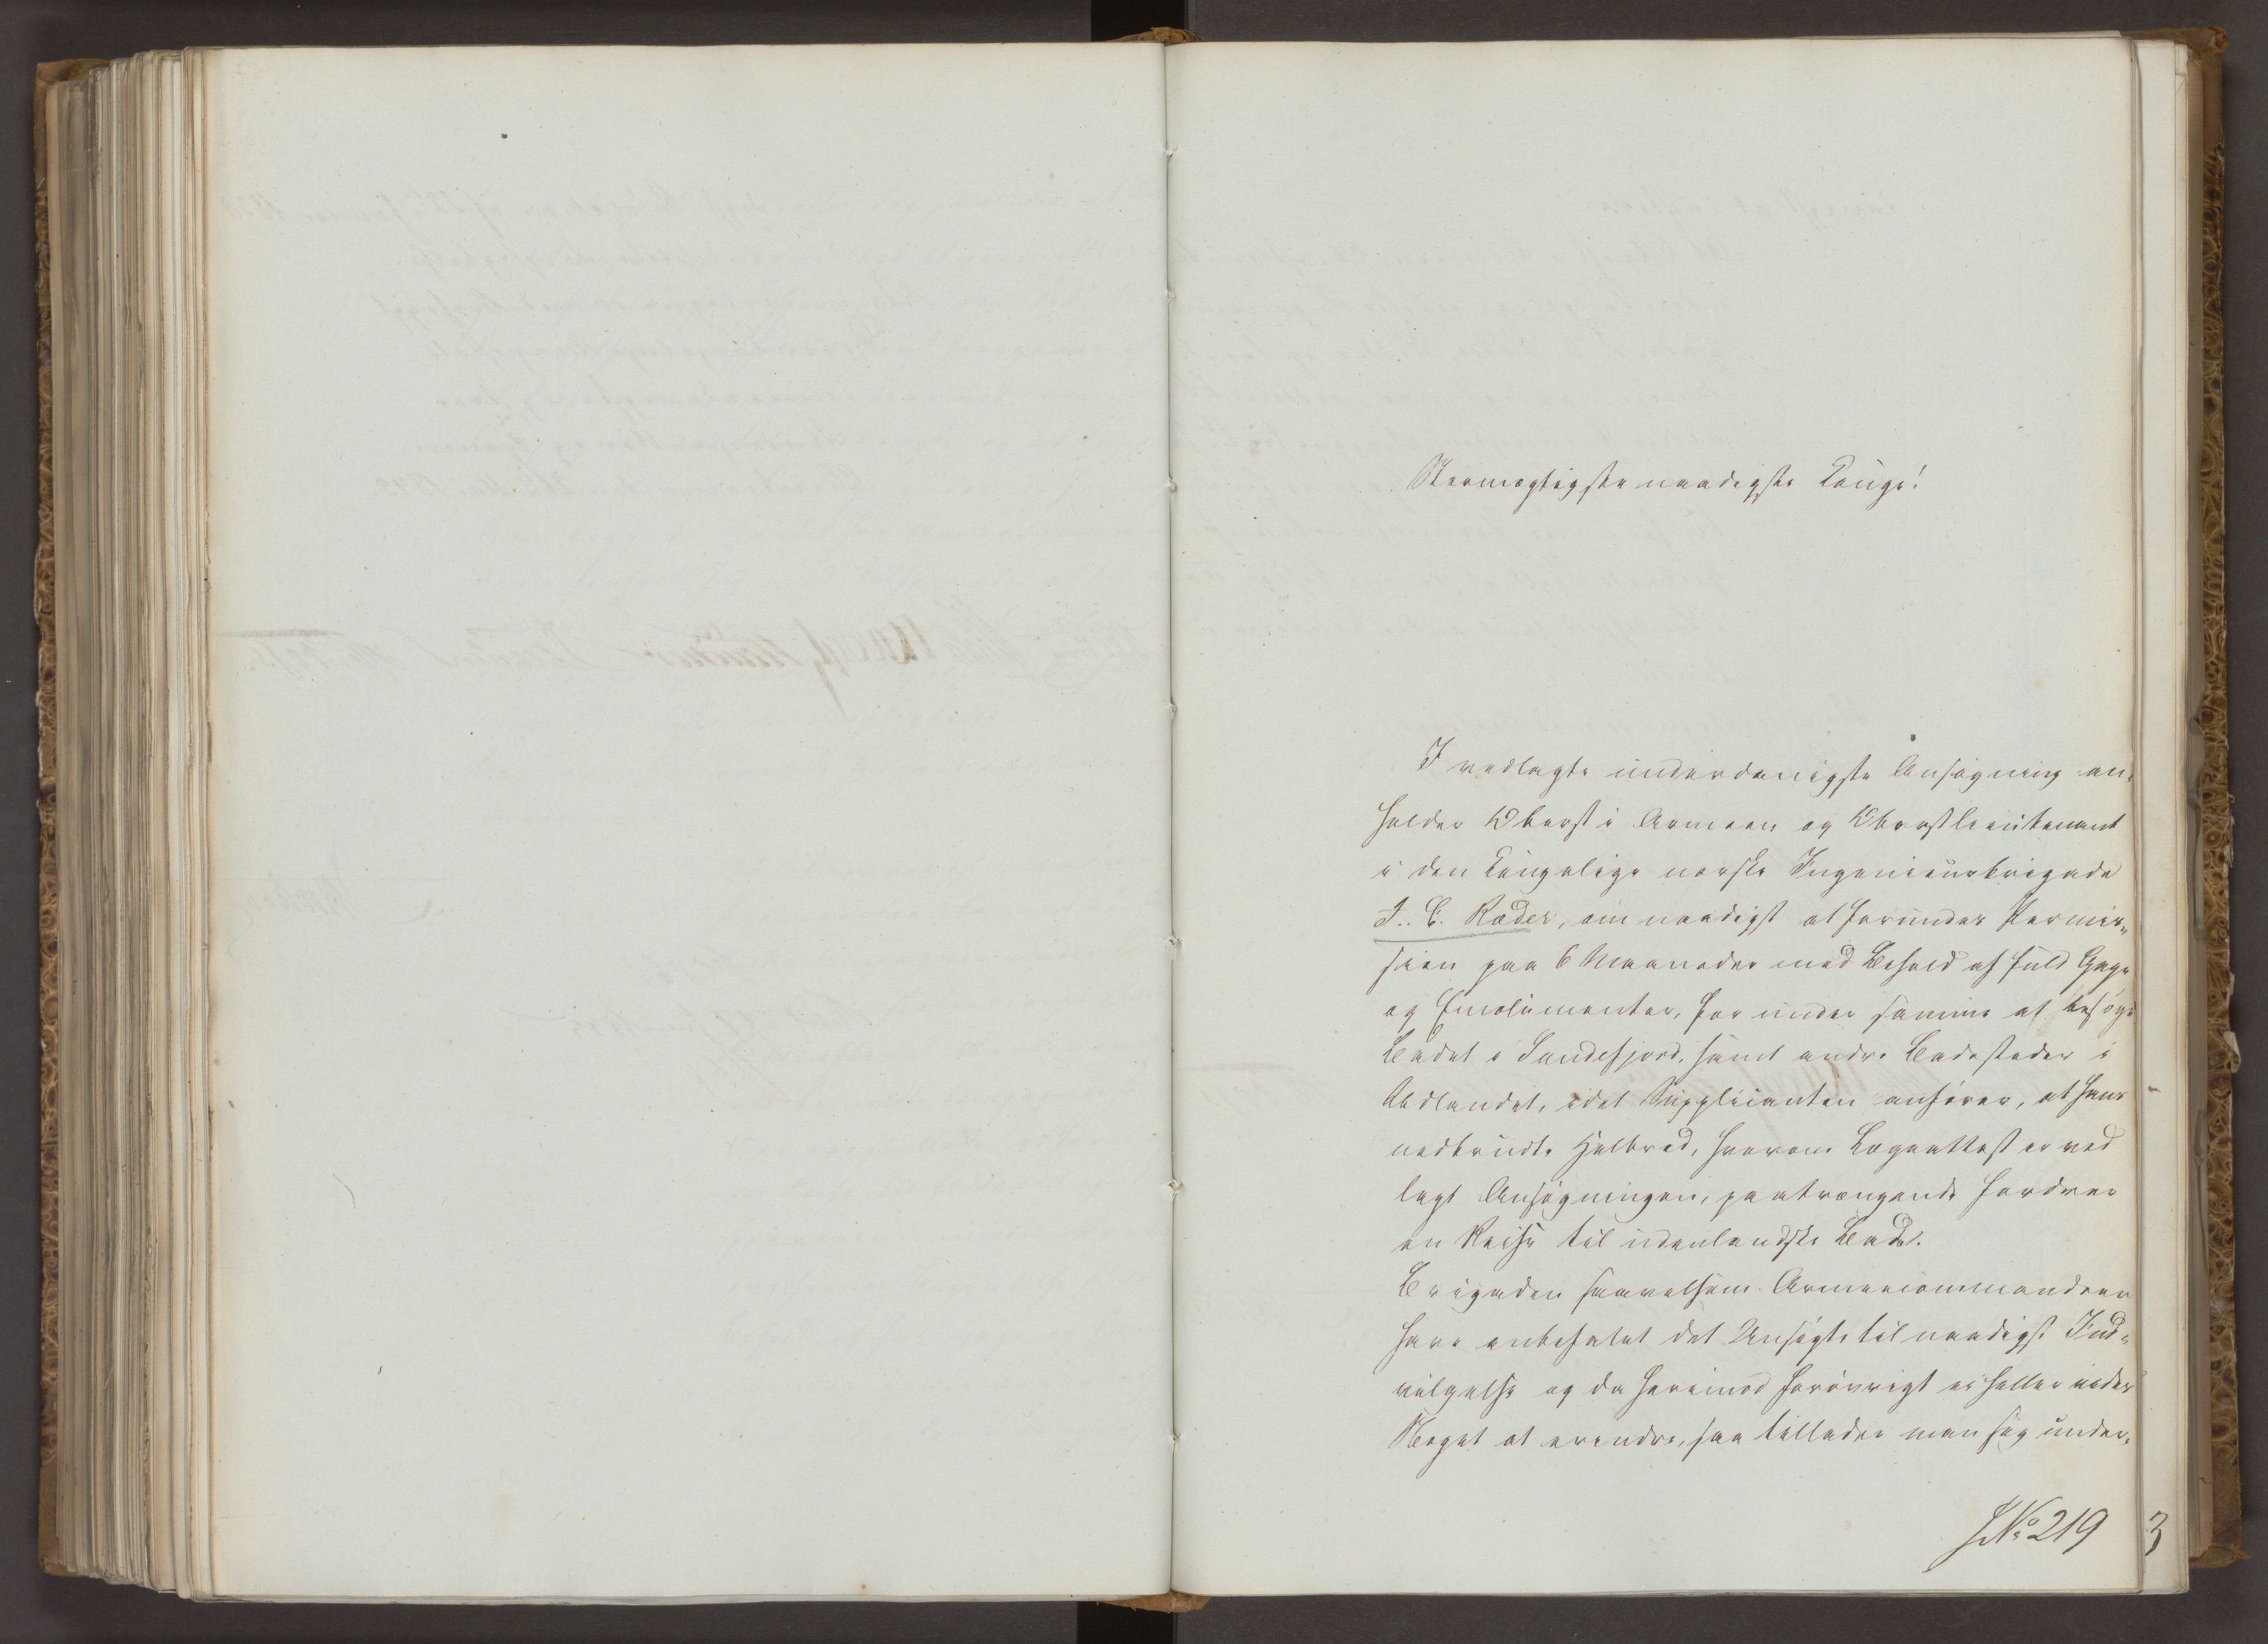 Stormægtigste naadigste Konge!
I vedlagte underdanigste Ansøgning an-
holder Oberst i Armeen og Oberstlieutenant
i den kongelige norske Ingenieurbrigade
J. C. Ræder, om naadigst at forundes Permis-
sion paa 6 Maaneder med Behold af fuld Gage
og Emolumenter, for under samme at besøge
Badet i Sandefjord, samt andre Badesteder i
Udlandet, idet Supplicanten anfører, at hans
nedbrudte Helbred, hvorom Lægeattest er ved
lagt Ansøgningen, paatrængende fordrer
en Reise til udenlandske Bade.
Brigaden saavelsom Armeecommandoen
have anbefalet det Ansøgte til naadigst Ind-
vilgelse og da herimod forøvrigt ei heller vides
Noget at erindre, saa tillader man sig under-
JNo 219
3